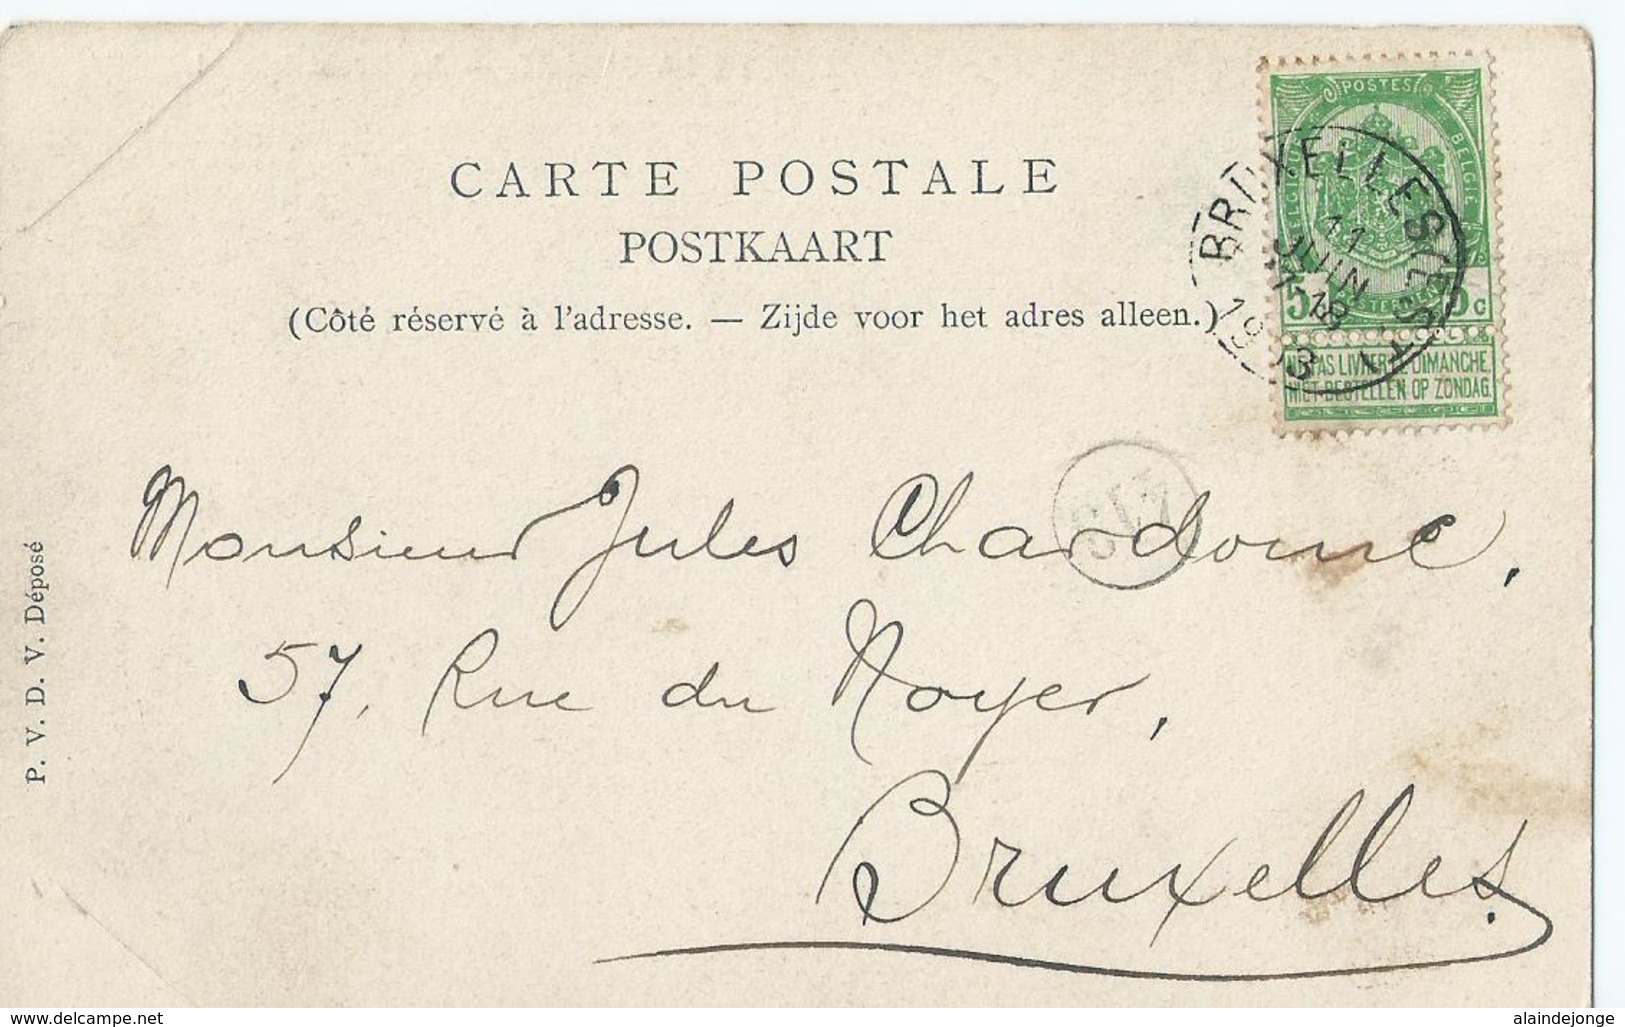 CARTE POSTALE
POSTKAART
(Côté réservé à l'adresse. — Zijde voor het adres alleen.)
POSTES
BELGIQUE
BELGIË
5 5c
NE PAS LIVRER LE DIMANCHE
NIET BESTELLEN OP ZONDAG
BRUXELLES
11
JUIN
18
1903
Monsieur Jules Chardome,
57, Rue du Noyer,
Bruxelles.
P. V. D. V. Déposé
www.delcampe.net
alaindejonge